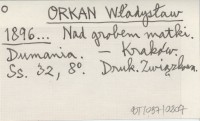 ORKAN Władysław
1896... Nad grobem matki.
Dumania. — Kraków.
Ss. 32, 8°. Druk. Związkowa.